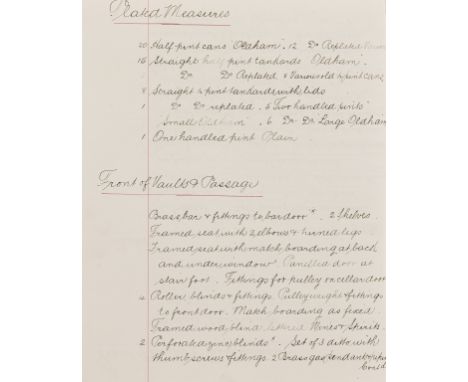 Plated Measures
20 Half pint cans "Oldham". 12 Do Replated
15 Straight half pint tankards "Oldham".
Do. Do Replated
4 Straight ½ pint tankards with lids
1 Do Do replated. 5 Two handled pints
"Small Oldham". 6 Do Do Large Oldham
1 One handled pint Plain
Front of Vaults & Passage
Brass bar & fittings to bar door. 2 Shelves.
Framed seat with 2 elbows & turned legs
Framed seat with match boarding at back
and under window. Panelled door at
stair foot. Fittings for pulley on cellar door
4 Roller blinds & fittings. Pulley weight & fittings
to front door. Match boarding as fixed.
Framed wood blind lettered Wines & Spirits.
2 Perforated zinc blinds. Set of 3 ditto with
thumb screws & fittings. 2 Brass gas pendants
Contd